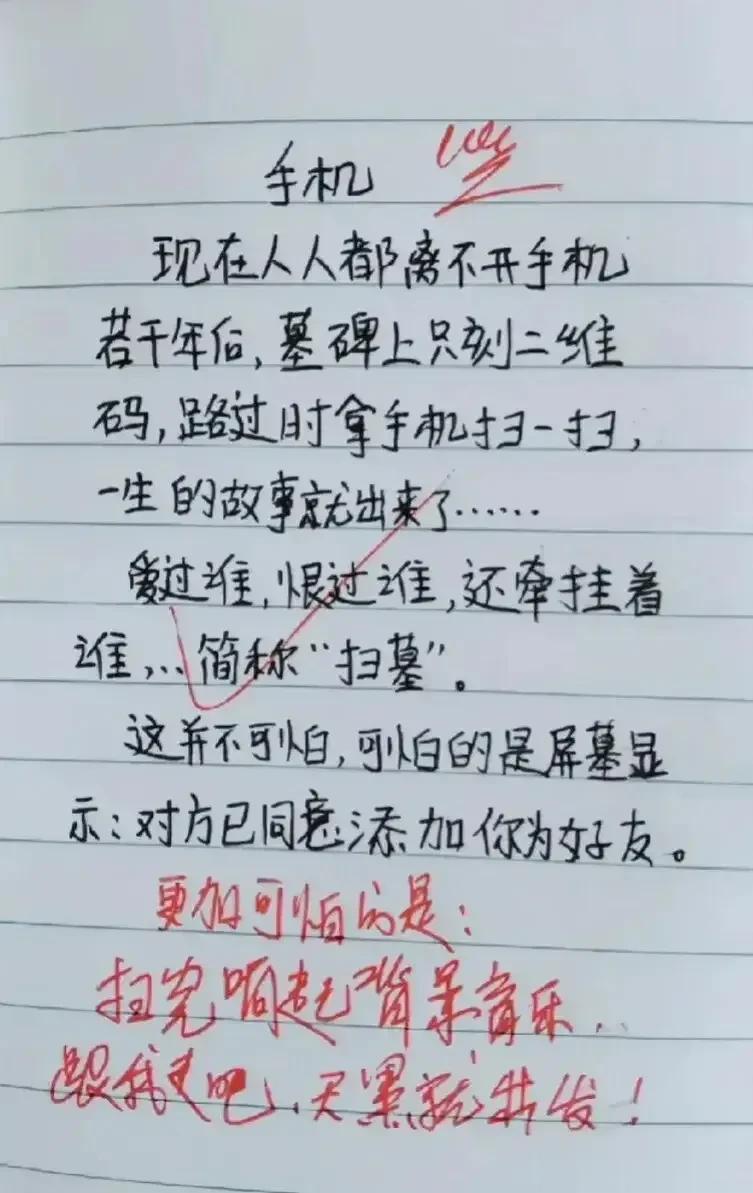 手机
现在人人都离不开手机
若干年后,墓碑上只刻二维
码,路过时拿手机扫一扫,
一生的故事就出来了……
爱过谁,恨过谁,还牵挂着
谁,…简称“扫墓”。
这并不可怕,可怕的是屏墓显
示:对方已同意添加你为好友。
更加可怕的是:
扫完响起背景音乐…
跟我走吧、天黑就出发!